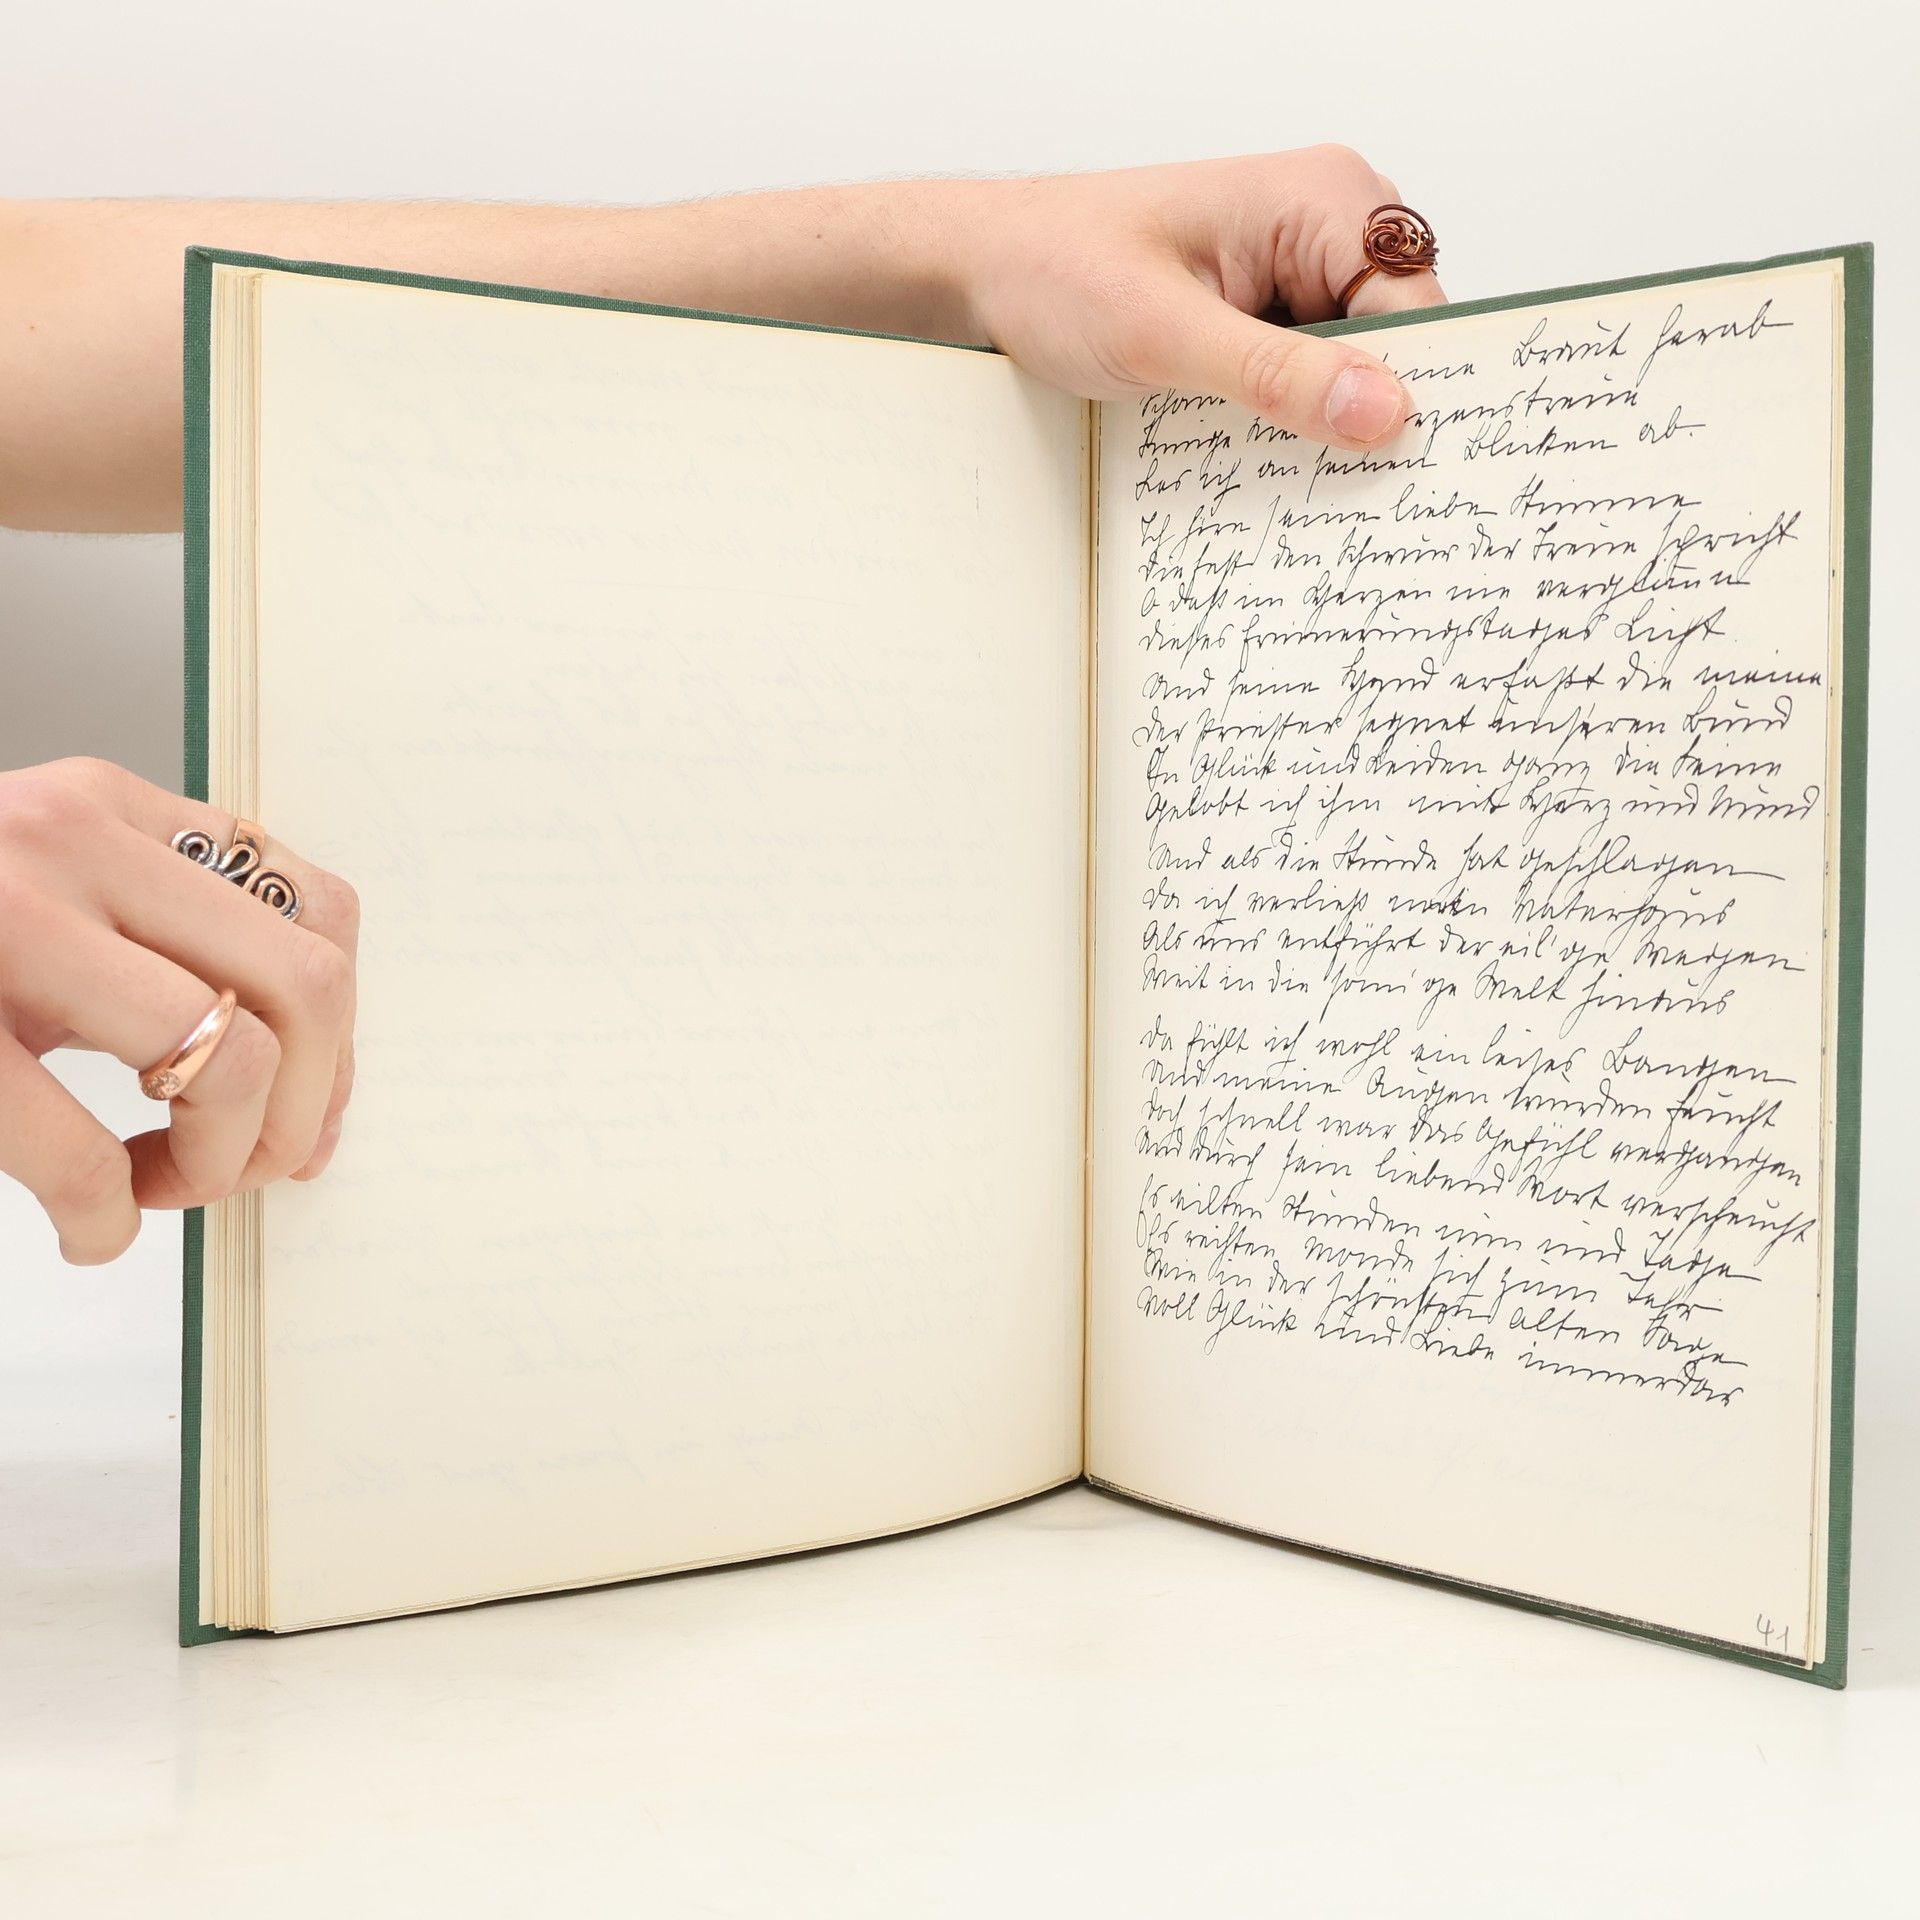 eine Braut herab
Schau
Innige rzenstreue
Las ich an seinen Blicken ab.
Ich höre seine liebe Stimme
die fest den Schwur der Treue spricht
O daß im Herzen nie verglimme
dieses Erinnerungstages Licht.
Und seine Hand erfaßt die meine
der Priester segnet unseren Bund
In Glück und Leiden ganz die Seine
Gelobt ich ihm mit Herz und Mund
Und als die Stunde hat geschlagen
da ich verließ mein Vaterhaus
Als uns entführt der eil'ge Wagen
Weit in die sonn'ge Welt hinaus
Da fühlt ich wohl ein leises Bangen
Und meine Augen wurden feucht
Doch schnell war das Gefühl vergangen
Und durch sein liebend Wort verscheucht
Es eilten Stunden nun und Tage
Es reihten Monde sich zum Jahr
Wie in der schönsten alten Sage
Voll Glück und Liebe immerdar
41